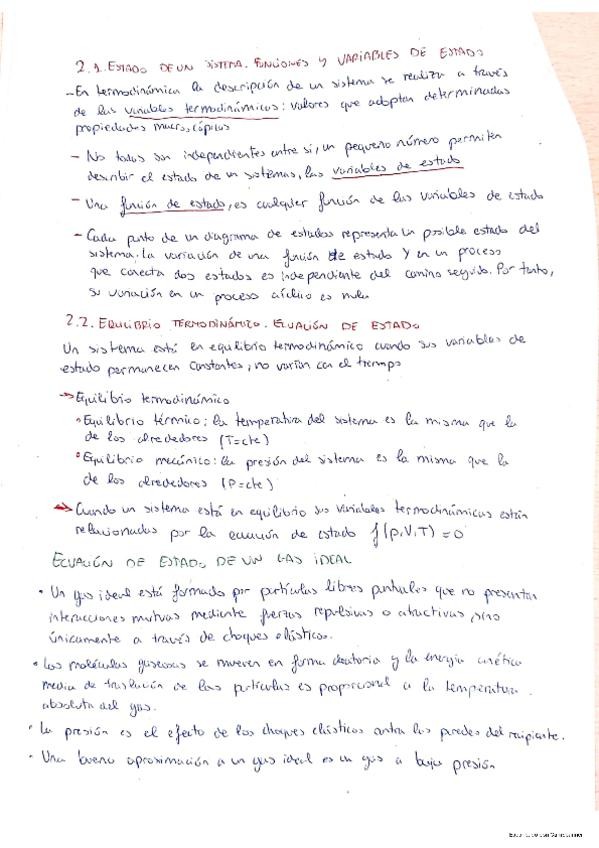 2.1. ESTADO DE UN SISTEMA. FUNCIONES Y VARIABLES DE ESTADO
- En termodinámica la descripción de un sistema se realiza a través
de las variables termodinámicas: valores que adoptan determinadas
propiedades macroscópicas
- No todas son independientes entre si, un pequeño número permiten
describir el estado de un sistemas, las variables de estado
- Una función de estado, es cualquier función de las variables de estado
- Cada punto de un diagrama de estados representa un posible estado del
sistema. La variación de una función de estado Y en un proceso
que conecta dos estados es independiente del camino seguido. Por tanto,
su variación en un proceso cíclico es nula
2.2. EQUILIBRIO TERMODINÁMICO. ECUACIÓN DE ESTADO
Un sistema está en equilibrio termodinámico cuando sus variables de
estado permanecen constantes, no varían con el tiempo
→ Equilibrio termodinámico
• Equilibrio térmico: la temperatura del sistema es la misma que la
de los alrededores (T=cte)
• Equilibrio mecánico: la presión del sistema es la misma que la
de los alrededores (P=cte)
→ Cuando un sistema está en equilibrio sus variables termodinámicas están
relacionadas por la ecuación de estado f(P,V,T) = 0
ECUACIÓN DE ESTADO DE UN GAS IDEAL
• Un gas ideal está formado por partículas libres puntuales que no presentan
interacciones mutuas mediante fuerzas repulsivas o atractivas, sino
únicamente a través de choques elásticos.
• Las moléculas gaseosas se mueven en forma aleatoria y la energía cinética
media de traslación de las partículas es proporcional a la temperatura
absoluta del gas.
• La presión es el efecto de los choques elásticos contra las paredes del recipiente.
• Una buena aproximación a un gas ideal es un gas a baja presión